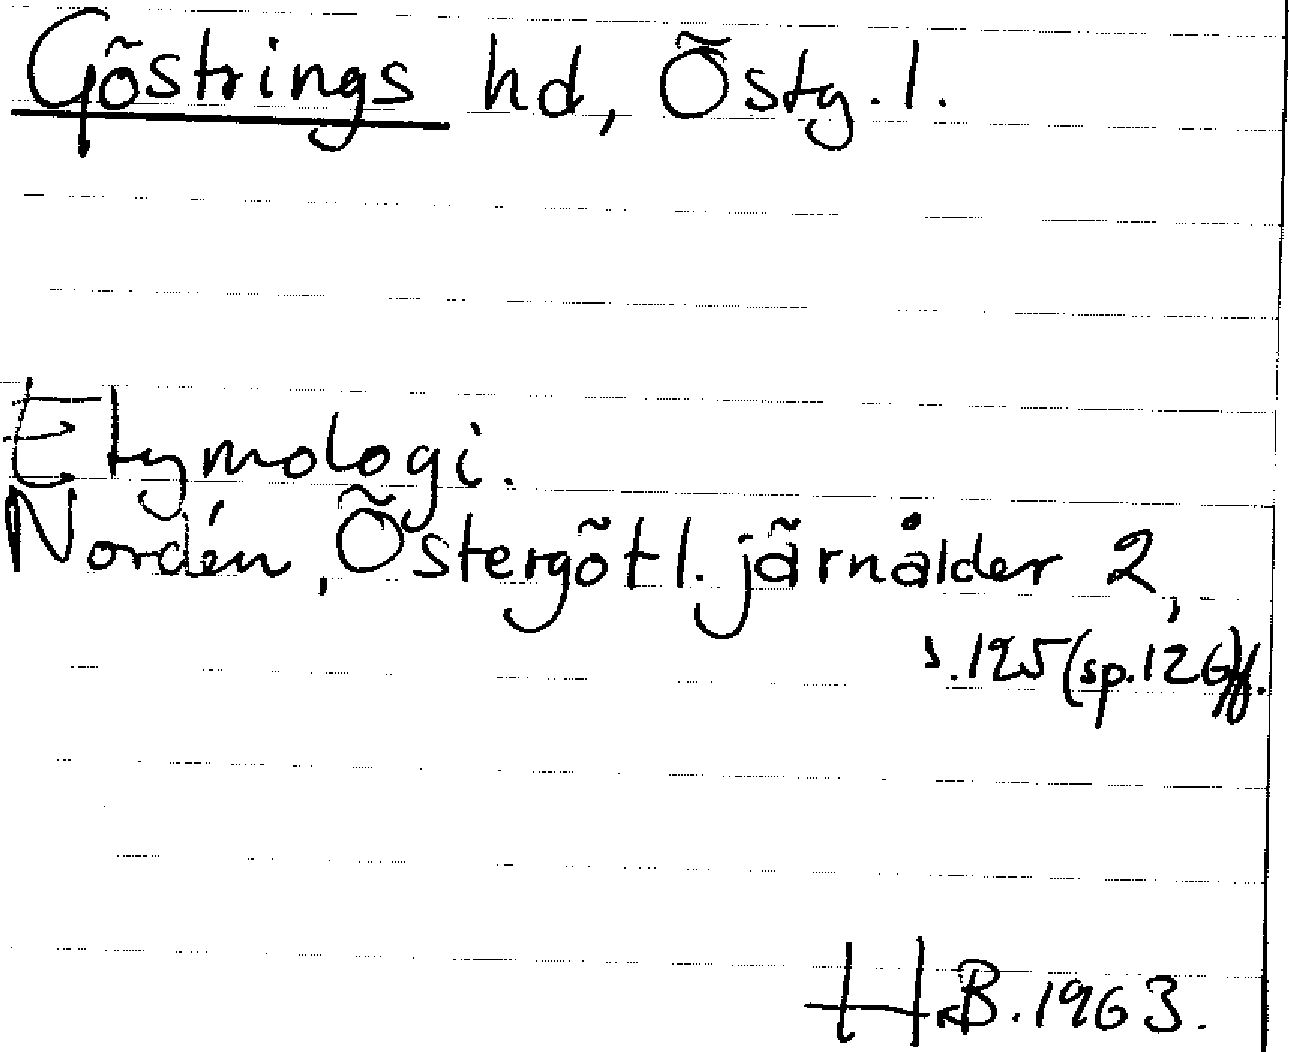 Göstrings hd, Östg. l.
Etymologi.
Nordén, Östergötl. järnålder 2,
s. 125 (sp. 126) ff.
H.B. 1963.